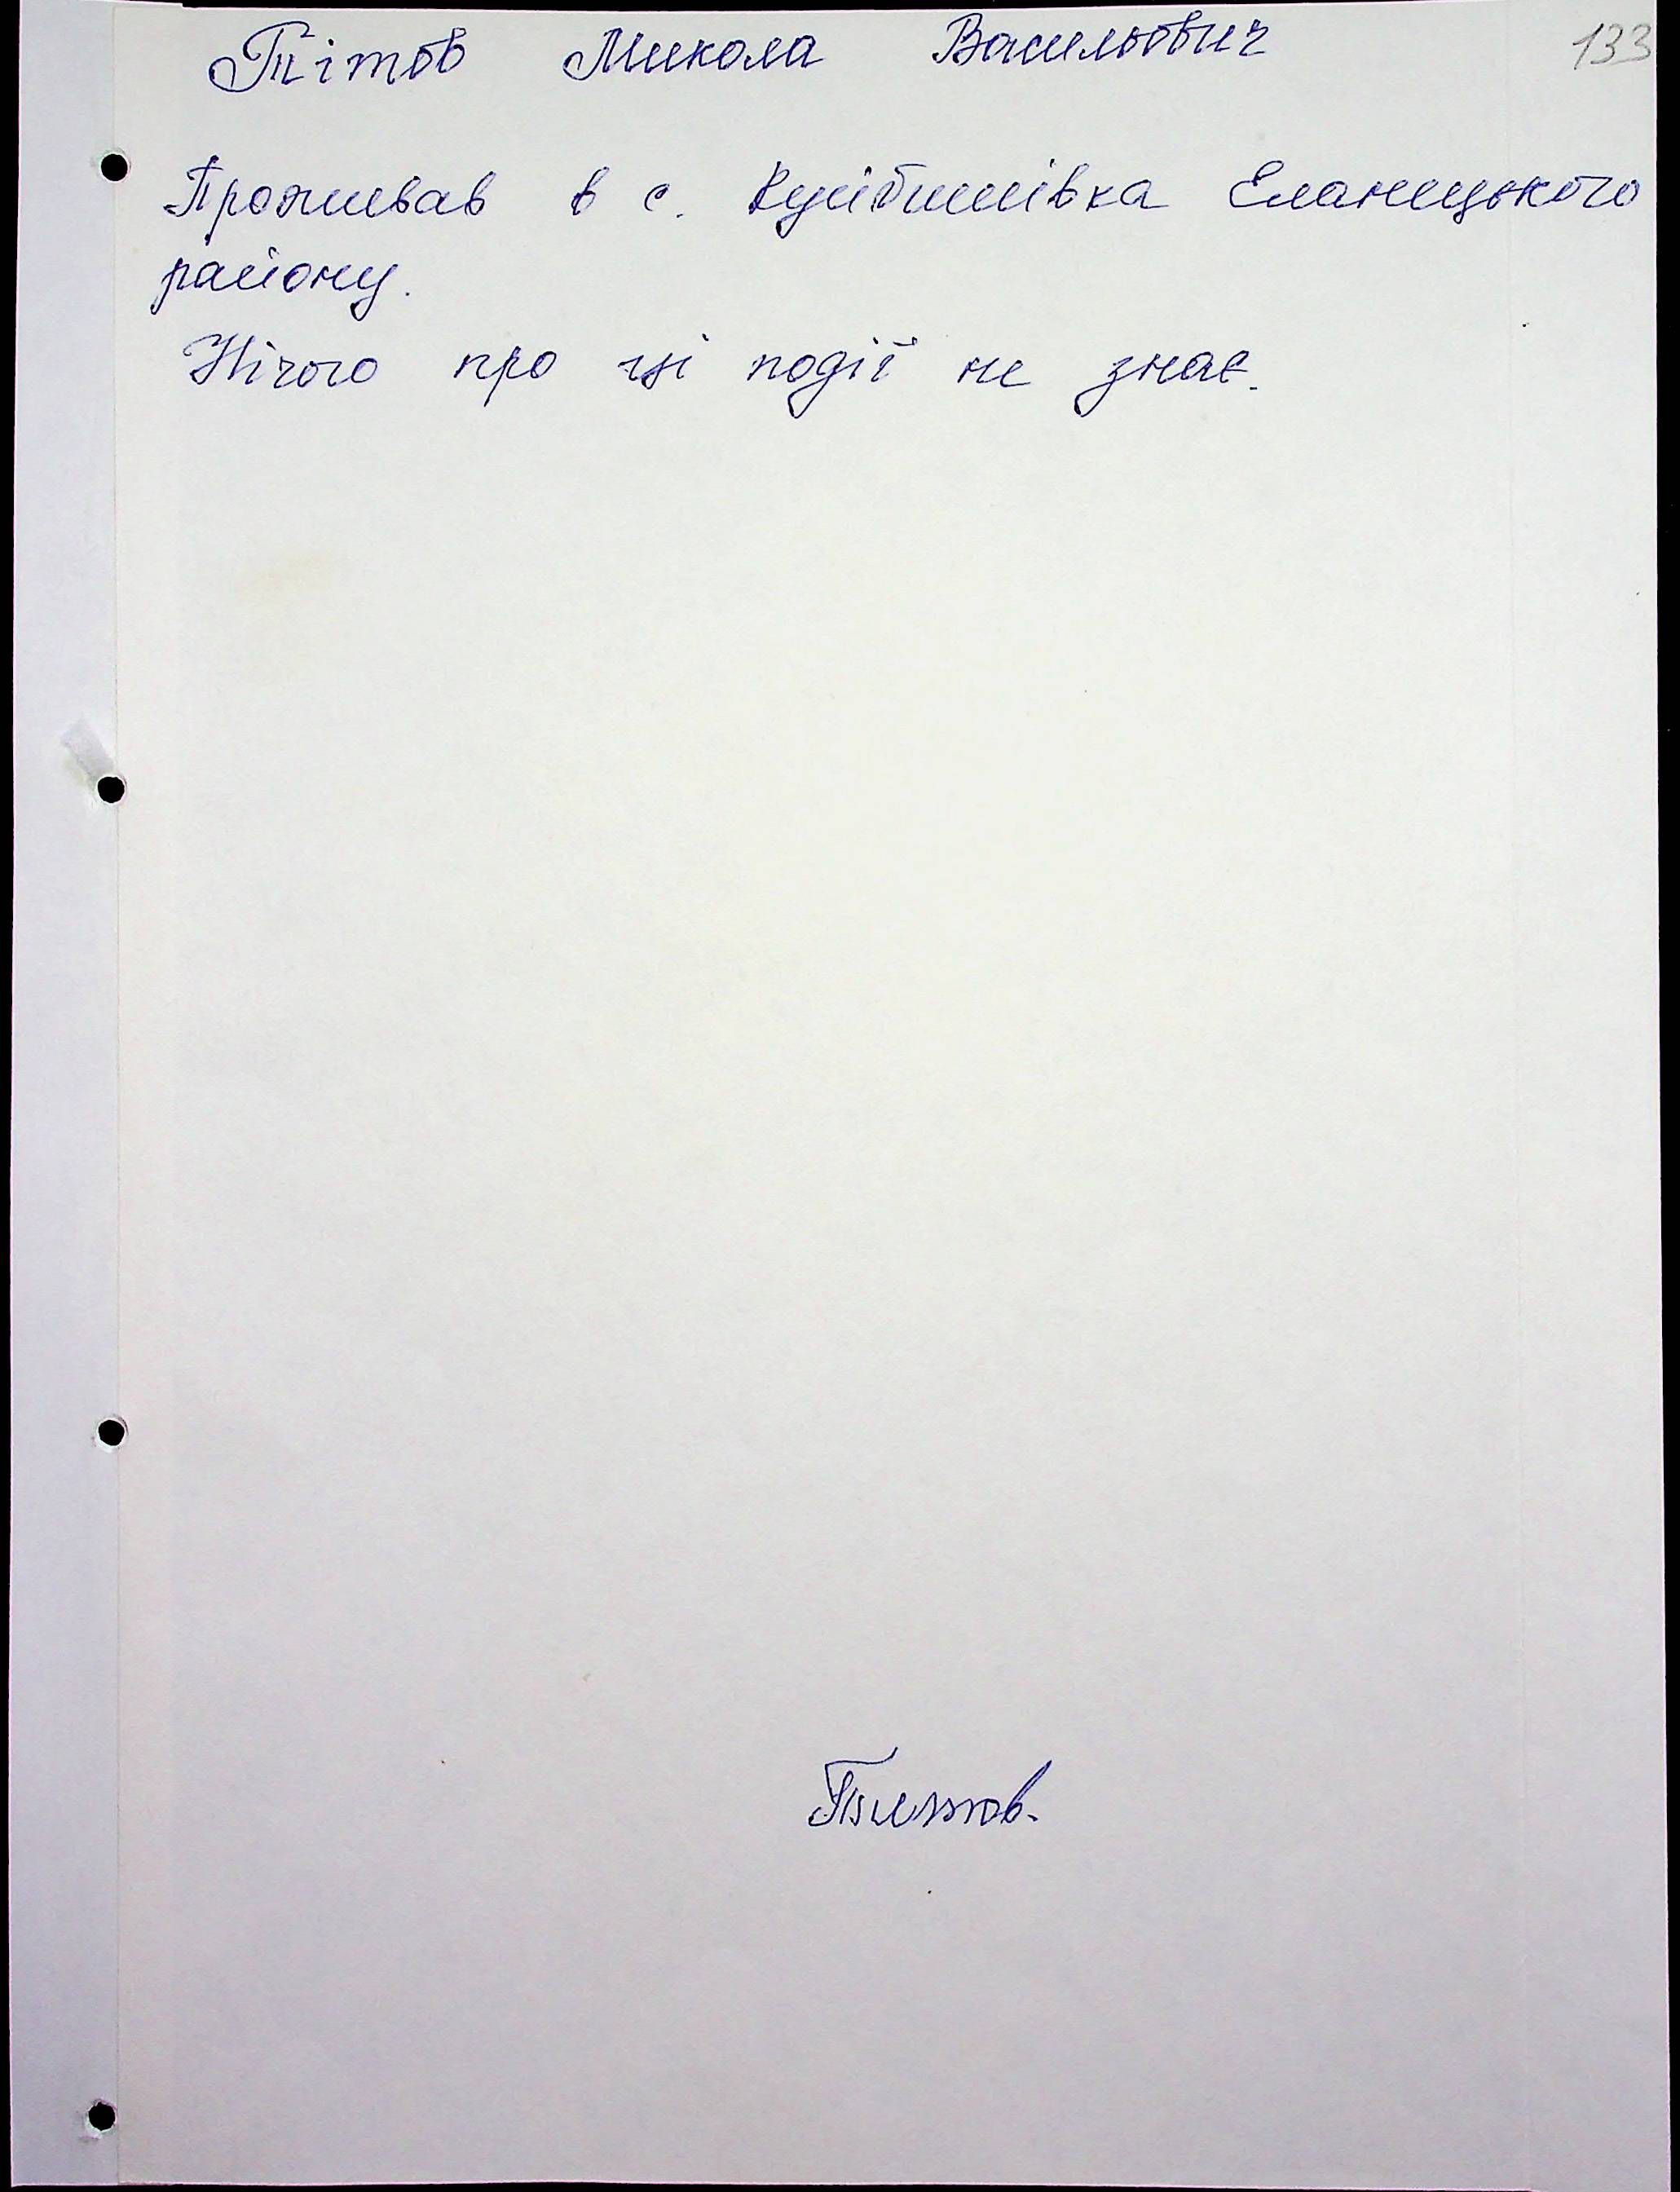 Тітов Микола Васильович 133
Проживав в с. Куйбишівка Еланецького
району.
Нічого про ці події не знає.
Титов.